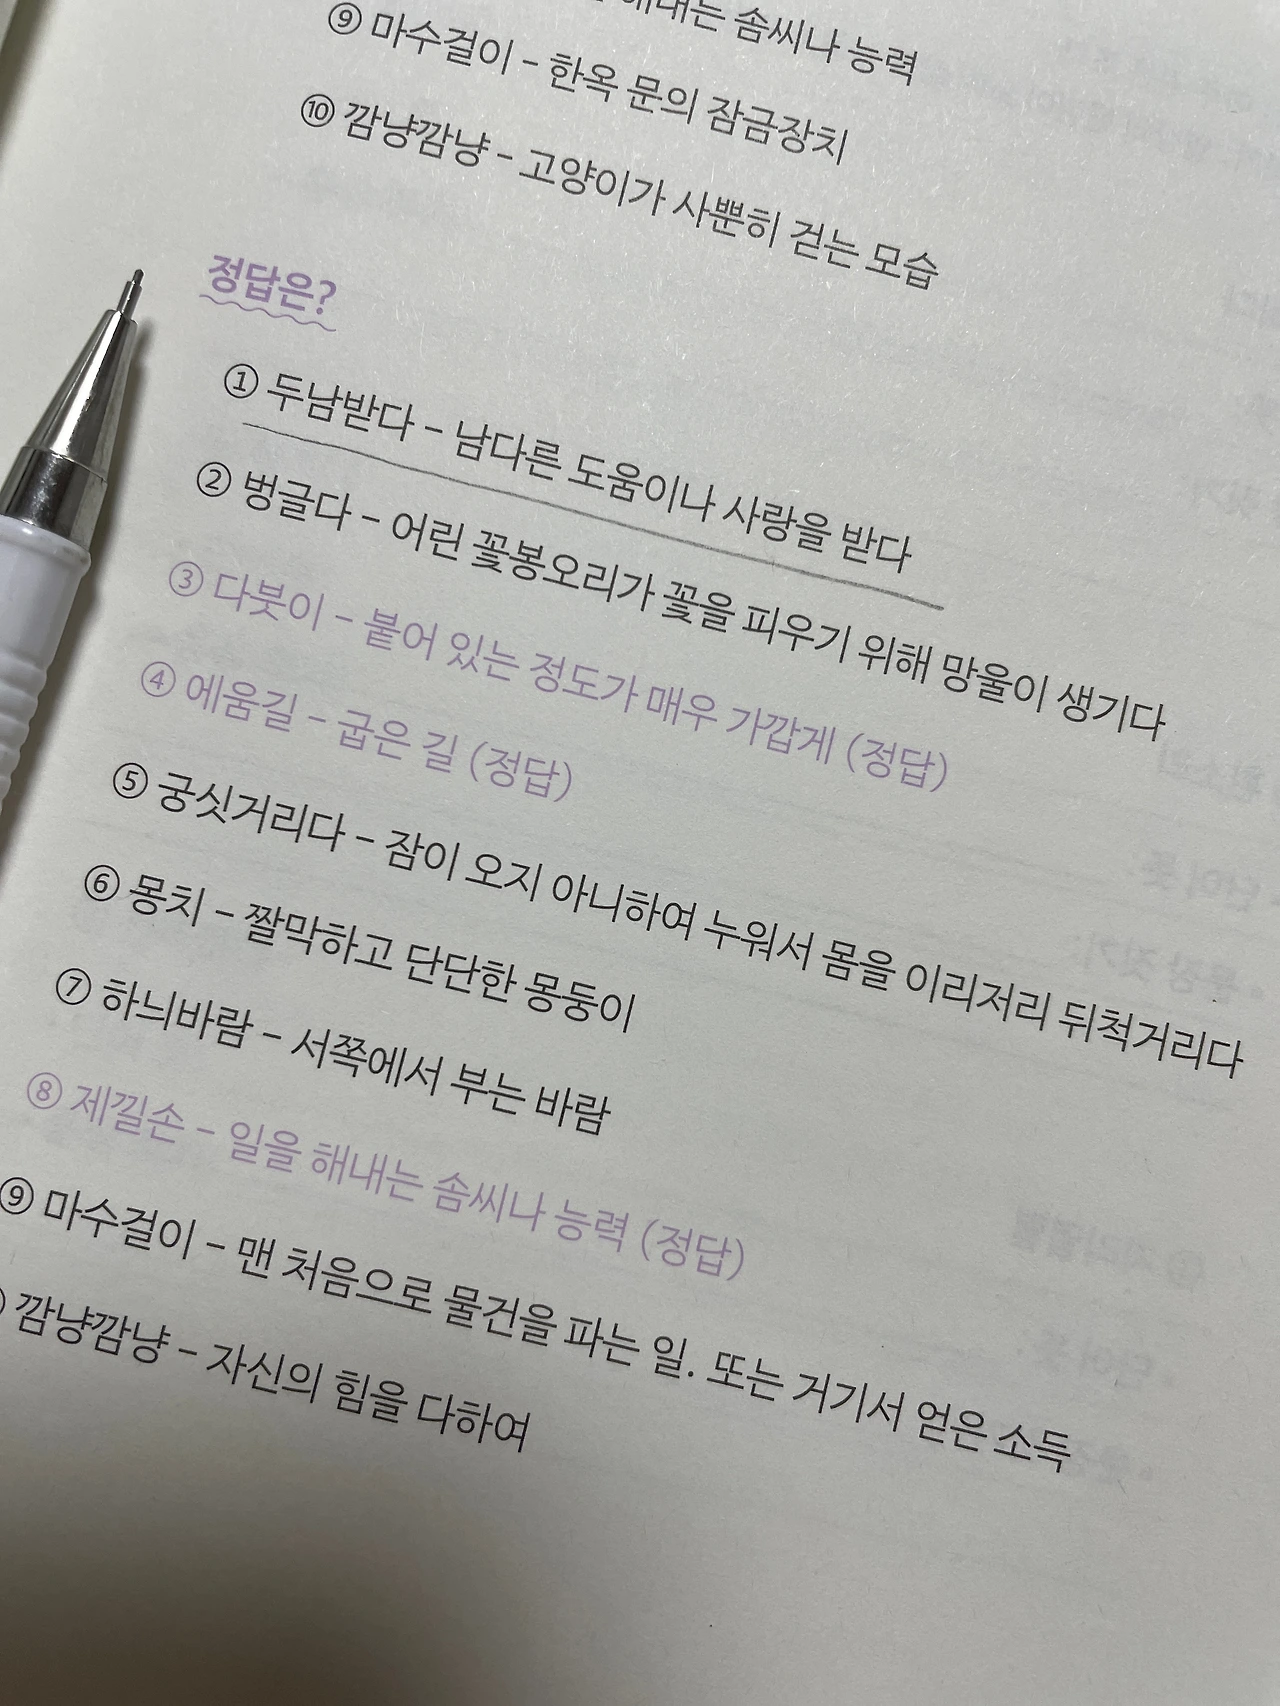 해내는 솜씨나 능력
⑨ 마수걸이 – 한옥 문의 잠금장치
⑩ 깜냥깜냥 – 고양이가 사뿐히 걷는 모습
정답은?
① 두남받다 – 남다른 도움이나 사랑을 받다
② 벙글다 – 어린 꽃봉오리가 꽃을 피우기 위해 망울이 생기다
③ 다붓이 – 붙어 있는 정도가 매우 가깝게 (정답)
④ 에움길 – 굽은 길 (정답)
⑤ 궁싯거리다 – 잠이 오지 아니하여 누워서 몸을 이리저리 뒤척거리다
⑥ 몽치 – 짤막하고 단단한 몽둥이
⑦ 하늬바람 – 서쪽에서 부는 바람
⑧ 제낄손 – 일을 해내는 솜씨나 능력 (정답)
⑨ 마수걸이 – 맨 처음으로 물건을 파는 일. 또는 거기서 얻은 소득
깜냥깜냥 – 자신의 힘을 다하여